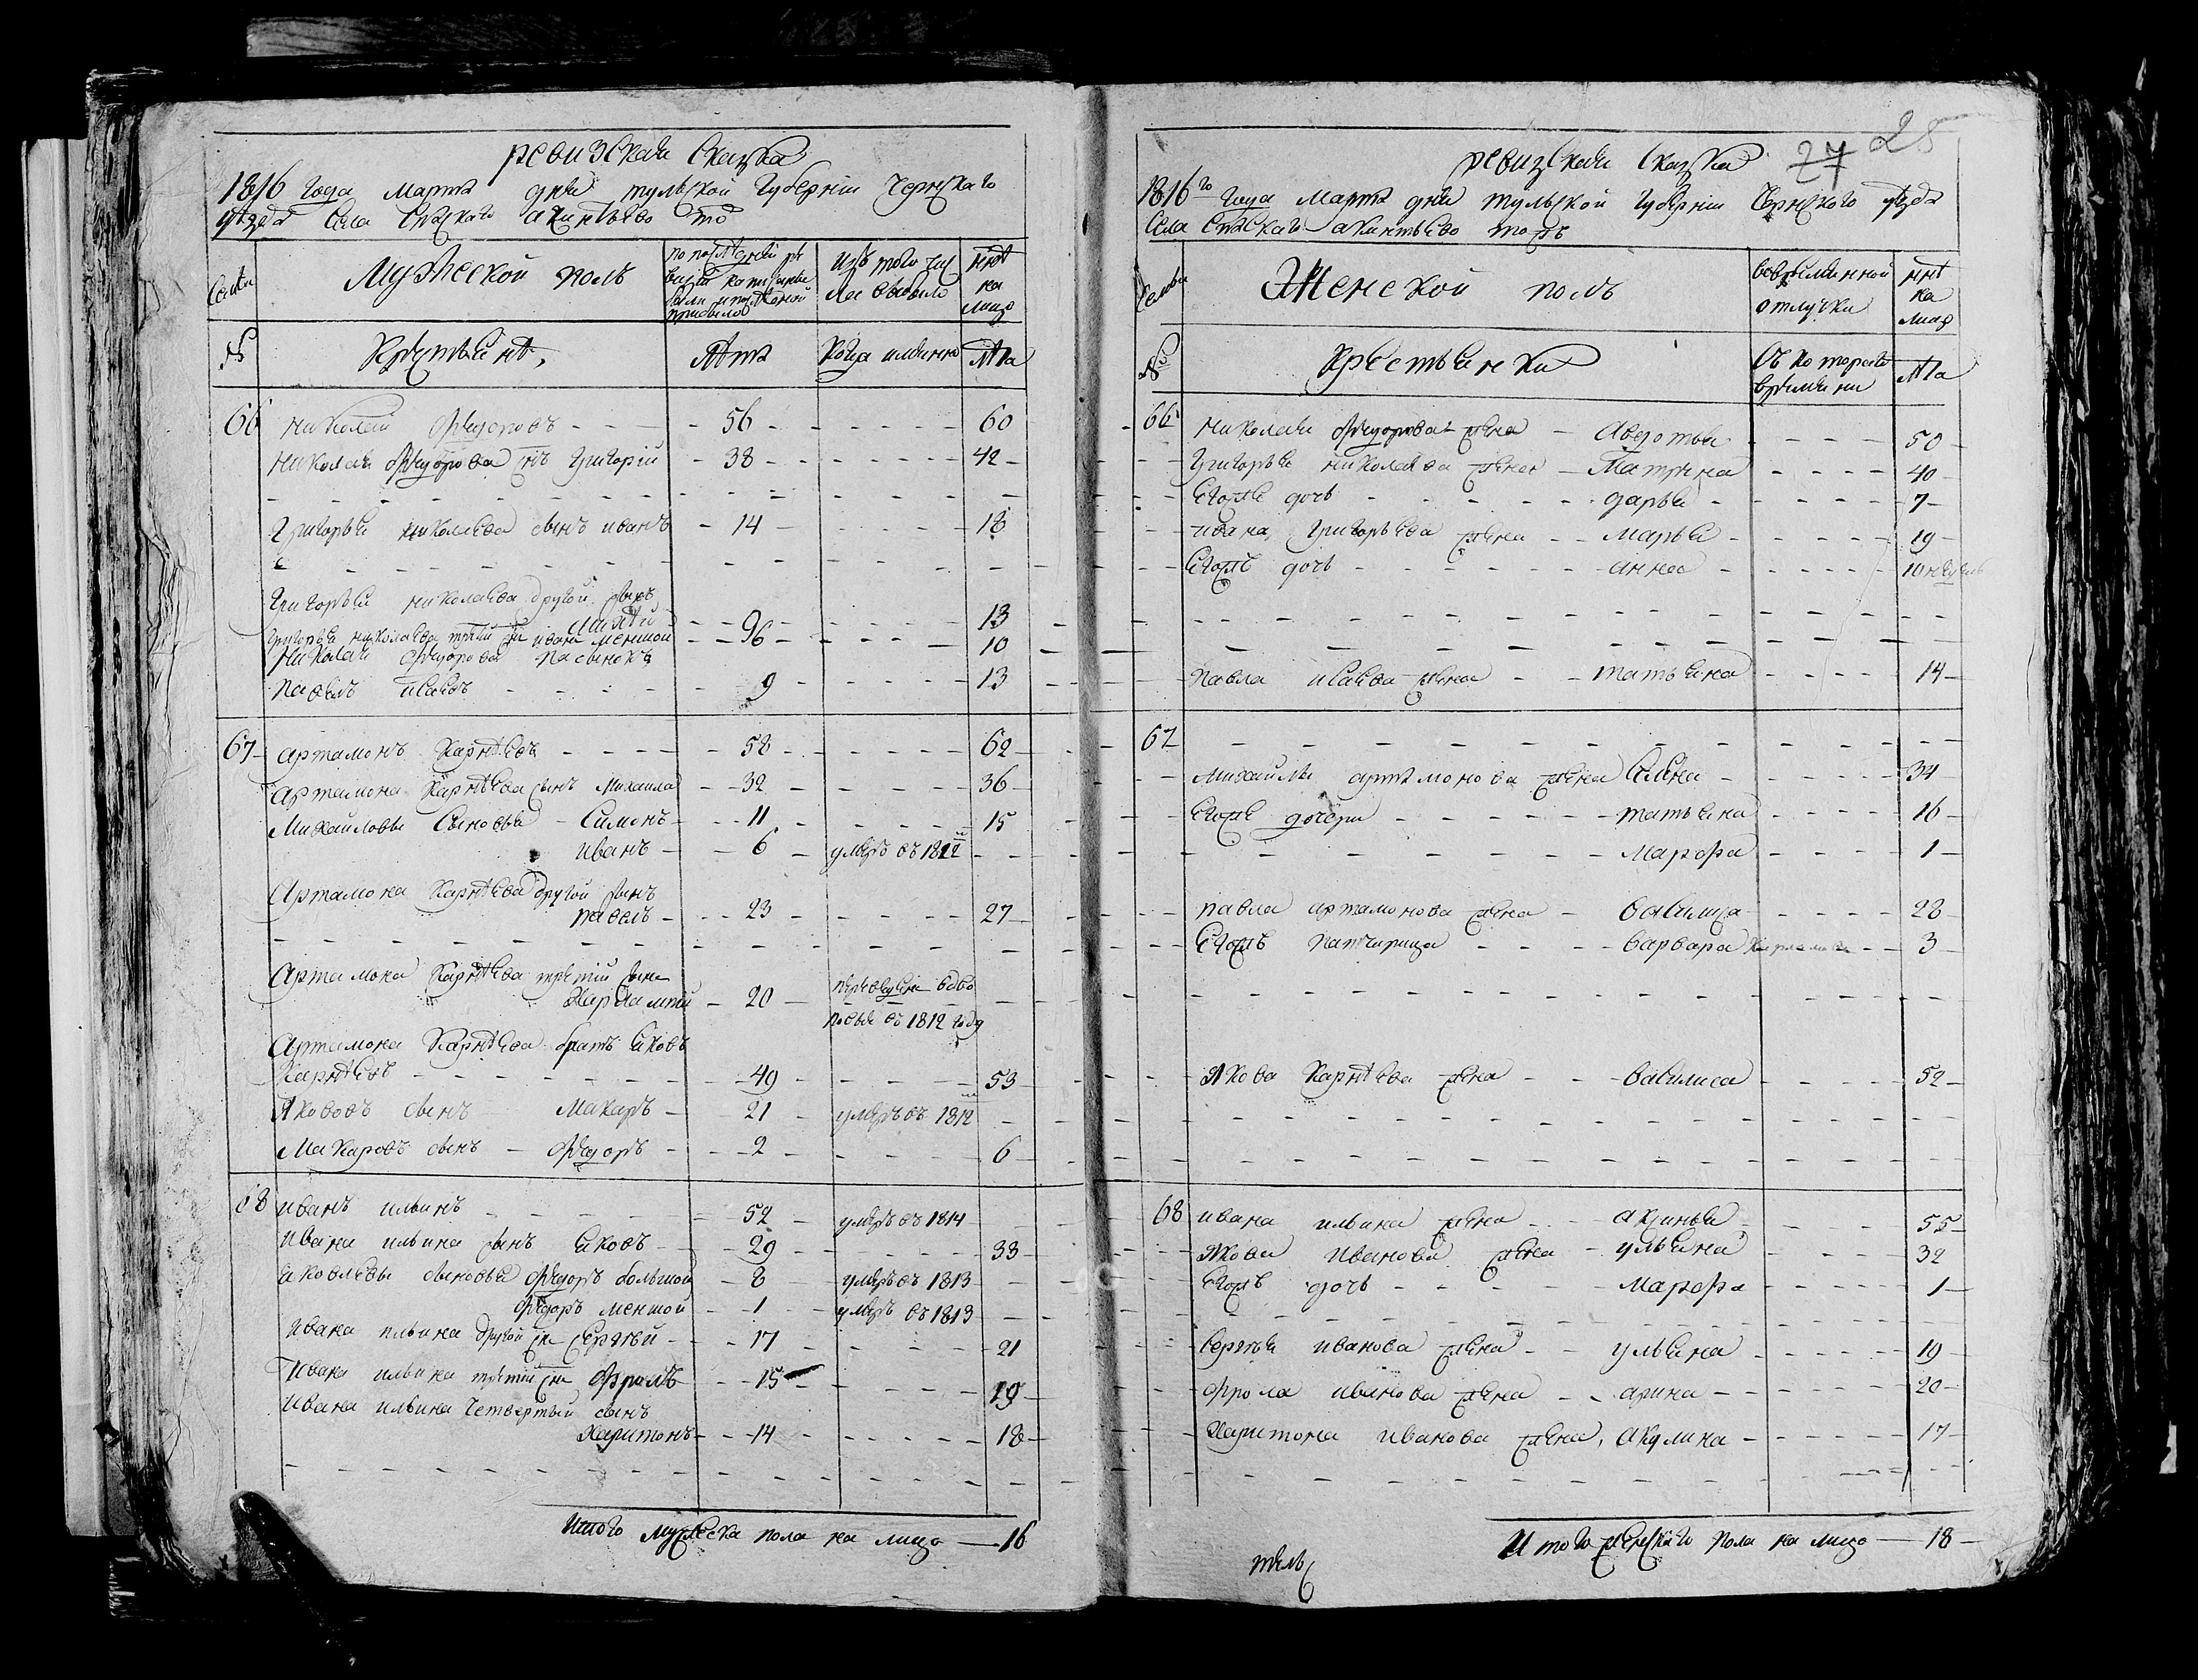 ревизская сказка
1816 года марта дня тульской губернии Чернскаго
уезда села Спаскаго акинтьево тож
Семьи
Мужеской полъ
по последней ре
визии
Изъ того чис
ла выбыло
ныне
на
лицо
№
Крестьяне,
Лета
Когда имянно
Лета
66 николай Федоровъ - 56 - 60
николая Федорова снъ григорий - 38 - 42
григорья николаева сынъ иванъ - 14 - 18
григорья николаева другой сынъ
- 9 - 13
григорья николаева третий снъ иванъ меншой - 6 - 10
николая Федорова пасынокъ
павелъ исаевъ - 9 - 13
67 артамонъ Карнеевъ - 58 - 62
артамона Карнеева сынъ михаила - 32 - 36
Михайловы Сыновья - Симонъ - 11 - 15
иванъ - 6 - умеръ въ 1812
Артамона Карнеева другой сынъ
павелъ - 23 - 27
Артамона Карнеева третий сынъ
Харлампий - 20 -
въ 1812 году
Артамона Карнеева братъ Яковъ
Карнеевъ - 49 - 53
Яковъ сынъ Макаръ - 21 - умеръ въ 1812
Макаровъ сынъ - Федоръ - 2 - 6
68 иванъ ильинъ - 52 - умеръ въ 1814
ивана ильина сынъ Яковъ - 29 - 33
Яковлевы сыновья Федоръ большой - 8 - умеръ въ 1813
Федоръ меншой - 1 - умеръ въ 1813
ивана ильина другой снъ Сергей - 17 - 21
ивана ильина третий снъ Фролъ - 15 - 19
ивана ильина четвертый сынъ
Харитонъ - 14 - 18
Итого мужеска пола на лицо - 16
27 28
ревизская сказка
1816го года марта дня тульской губернии Чернского уезда
Села Спаскаго акинтьево тожъ
Семьи
Женской полъ
вовременной
отлучки
ныне
на
лицо
№
Крестьянки
Съ котораго
времяни
Лета
66 николая Федорова жена - Авдотья - 50
григорья николаева жена - Матрена - 40
Егоже дочь - дарья - 7
ивана григорьева жена - марья - 19
Егожъ дочь - анна
павла исаева жена - татьяна - 14
67
михайлы артамонова жена Елена - 34
Егоже дочери - татьяна - 16
марфа - 1
павла артамонова жена - василиса - 28
Егожъ патчирица - варвара - 3
Якова Карнеева жена - василиса - 52
68 ивана ильина жена - аксинья - 55
Якова иванова жена - ульяна - 32
Егожъ дочь - марфа - 1
Сергея иванова жена - ульяна - 19
Фрола иванова жена - арина - 20
Харитона иванова жена, акулина - 17
Итого женскаго пола на лицо - 18